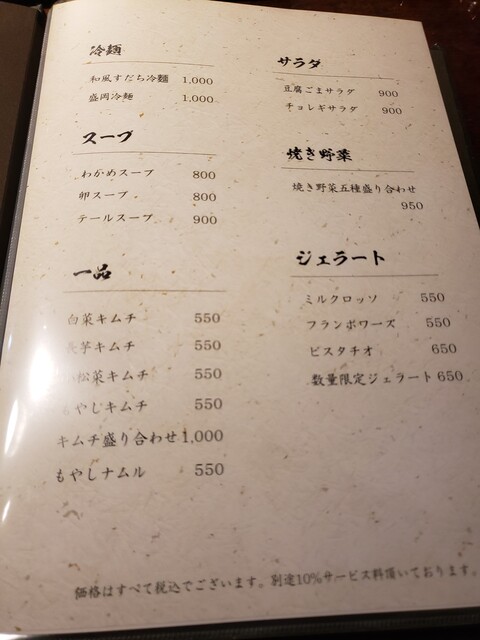 冷麺
和風すだち冷麺 1,000
盛岡冷麺 1,000
スープ
わかめスープ 800
卵スープ 800
テールスープ 900
一品
白菜キムチ 550
芋キムチ 550
松菜キムチ 550
もやしキムチ 550
キムチ盛り合わせ 1,000
もやしナムル 550
サラダ
豆腐ごまサラダ 900
チョレギサラダ 900
焼き野菜
焼き野菜五種盛り合わせ
950
ジェラート
ミルクロッソ 550
フランボワーズ 550
ピスタチオ 650
数量限定ジェラート 650
価格はすべて税込でございます。別途10%サービス料頂いております。